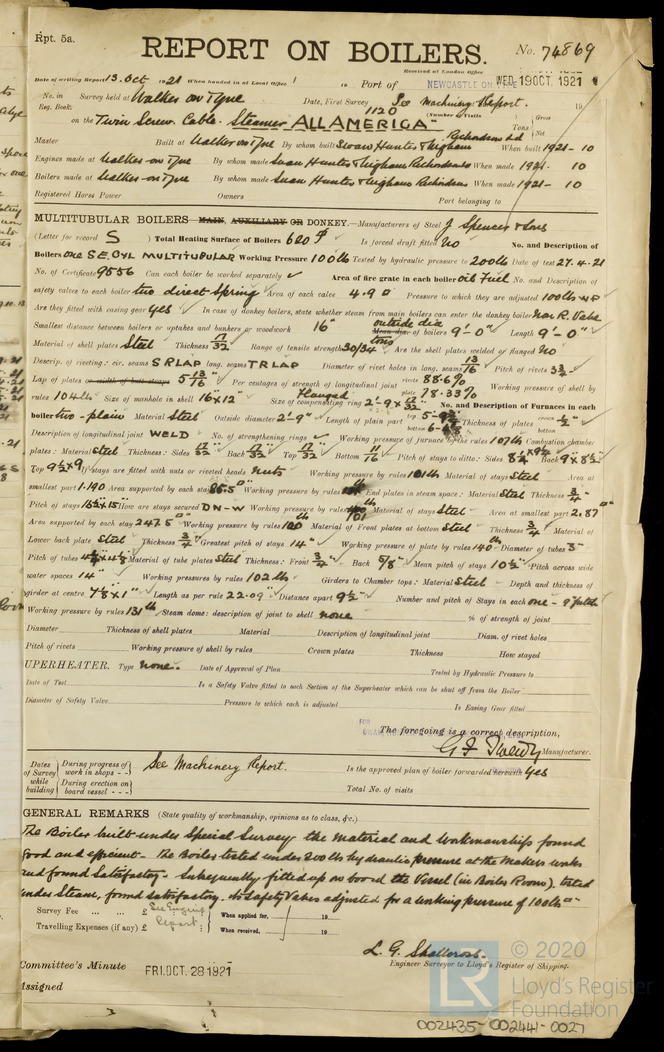 Rpt. 5a.
REPORT ON BOILERS.
No. 74869
Received at London Office WED. 19 OCT. 1921
Date of writing Report 13. Oct 1921 When handed in at Local Office 19 Port of NEWCASTLE ON TYNE
No. in Survey held at Walker on Tyne Date, First Survey See Machinery Report. 19
Reg. Book. 1120 (Number of Visits)
on the Twin Screw. Cable. Steamer "ALL AMERICA" Tons Gross Net
Master Built at Walker on Tyne By whom built Swan Hunter & Wigham Richardson Ld When built 1921 - 10
Engines made at Walker on Tyne By whom made Swan Hunter & Wigham Richardsons When made 1921 - 10
Boilers made at Walker on Tyne By whom made Swan Hunter & Wigham Richardsons When made 1921 - 10
Registered Horse Power Owners Port belonging to
MULTITUBULAR BOILERS MAIN, AUXILIARY OR DONKEY.—Manufacturers of Steel J Spencer & Sons
(Letter for record S ) Total Heating Surface of Boilers 620 Is forced draft fitted No No. and Description of
Boilers One S.E. CYL MULTITUBULAR Working Pressure 100 lb Tested by hydraulic pressure to 200 lb Date of test 27.4.21
No. of Certificate 9556 Can each boiler be worked separately ✓ Area of fire grate in each boiler Oil Fuel No. and Description of
safety valves to each boiler two direct Spring Area of each valve 4.9 □" Pressure to which they are adjusted 100 lb WP
Are they fitted with easing gear Yes In case of donkey boilers, state whether steam from main boilers can enter the donkey boiler Non R. Valve
Smallest distance between boilers or uptakes and bunkers or woodwork 16" outside dia Mean dia. of boilers 9'-0" Length 9'-0"
Material of shell plates Steel Thickness 17/32 Range of tensile strength 30/34 tons Are the shell plates welded or flanged No
Descrip. of riveting: cir. seams S R LAP long. seams T R LAP Diameter of rivet holes in long. seams 13/16 Pitch of rivets 3 3/4
Lap of plates or width of butt straps 5 13/16 Per centages of strength of longitudinal joint rivets 88.6% plate 78.33% Working pressure of shell by
rules 104 lb Size of manhole in shell 16" x 12" Size of compensating ring Flanged 2'-9 x 17/32 No. and Description of Furnaces in each
boiler two - plain Material Steel Outside diameter 2'-9" Length of plain part top bottom Thickness of plates crown bottom 1/2"
Description of longitudinal joint WELD No. of strengthening rings Working pressure of furnace by the rules 107 lb Combustion chamber
plates: Material Steel Thickness: Sides 17/32 Back 17/32 Top 17/32 Bottom 11/16 Pitch of stays to ditto: Sides 8 1/2 x 9 1/2 Back 9 x 8 1/2
Top 9 1/2 x 9 If stays are fitted with nuts or riveted heads nuts Working pressure by rules 101 lb Material of stays Steel Area at
smallest part 1.190 Area supported by each stay 85.5 □" Working pressure by rules End plates in steam space: Material Steel Thickness 3/4"
Pitch of stays 16 1/2 x 15" How are stays secured DN-W Working pressure by rules 101 lb Material of stays Steel Area at smallest part 2.87 □"
Area supported by each stay 247.5 □" Working pressure by rules 100 lb Material of Front plates at bottom Steel Thickness 3/4 Material of
Lower back plate Steel Thickness 3/4" Greatest pitch of stays 14" Working pressure of plate by rules 140 lb Diameter of tubes 3"
Pitch of tubes 4 1/4 x 4 1/8 Material of tube plates Steel Thickness: Front 3/4" Back 5/8" Mean pitch of stays 10 1/2" Pitch across wide
water spaces 14" Working pressures by rules 102 lb Girders to Chamber tops: Material Steel Depth and thickness of
girder at centre 7/8 x 1" Length as per rule 22.09" Distance apart 9 1/2" Number and pitch of Stays in each one - 9" pitch
Working pressure by rules 131 lb Steam dome: description of joint to shell none % of strength of joint
Diameter Thickness of shell plates Material Description of longitudinal joint Diam. of rivet holes
Pitch of rivets Working pressure of shell by rules Crown plates Thickness How stayed
UPERHEATER. Type none. Date of Approval of Plan Tested by Hydraulic Pressure to
Date of Test Is a Safety Valve fitted to each Section of the Superheater which can be shut off from the Boiler
Diameter of Safety Valve Pressure to which each is adjusted Is Easing Gear fitted
FOR
The foregoing is a correct description,
G F Tweedy Manufacturer.
Dates of Survey while building During progress of work in shops - - During erection on board vessel - - - See Machinery Report. Is the approved plan of boiler forwarded herewith Yes
Total No. of visits
GENERAL REMARKS (State quality of workmanship, opinions as to class, &c.)
The Boiler built under Special Survey the material and workmanship found
good and efficient - The Boiler tested under 200 lbs hydraulic pressure at the Makers works
and found Satisfactory - Subsequently fitted up on board the Vessel (in Boiler Room). tested
under Steam, found satisfactory. & Safety Valves adjusted for a working pressure of 100 lbs □"
Survey Fee ... ... £ See Engine When applied for, 19
Travelling Expenses (if any) £ Report When received, 19
L. G. Shallcross.
Engineer Surveyor to Lloyd's Register of Shipping.
Committee's Minute FRI. OCT. 28 1921
Assigned
© 2020
LR
Lloyd's Register
Foundation
002435-002441-0027